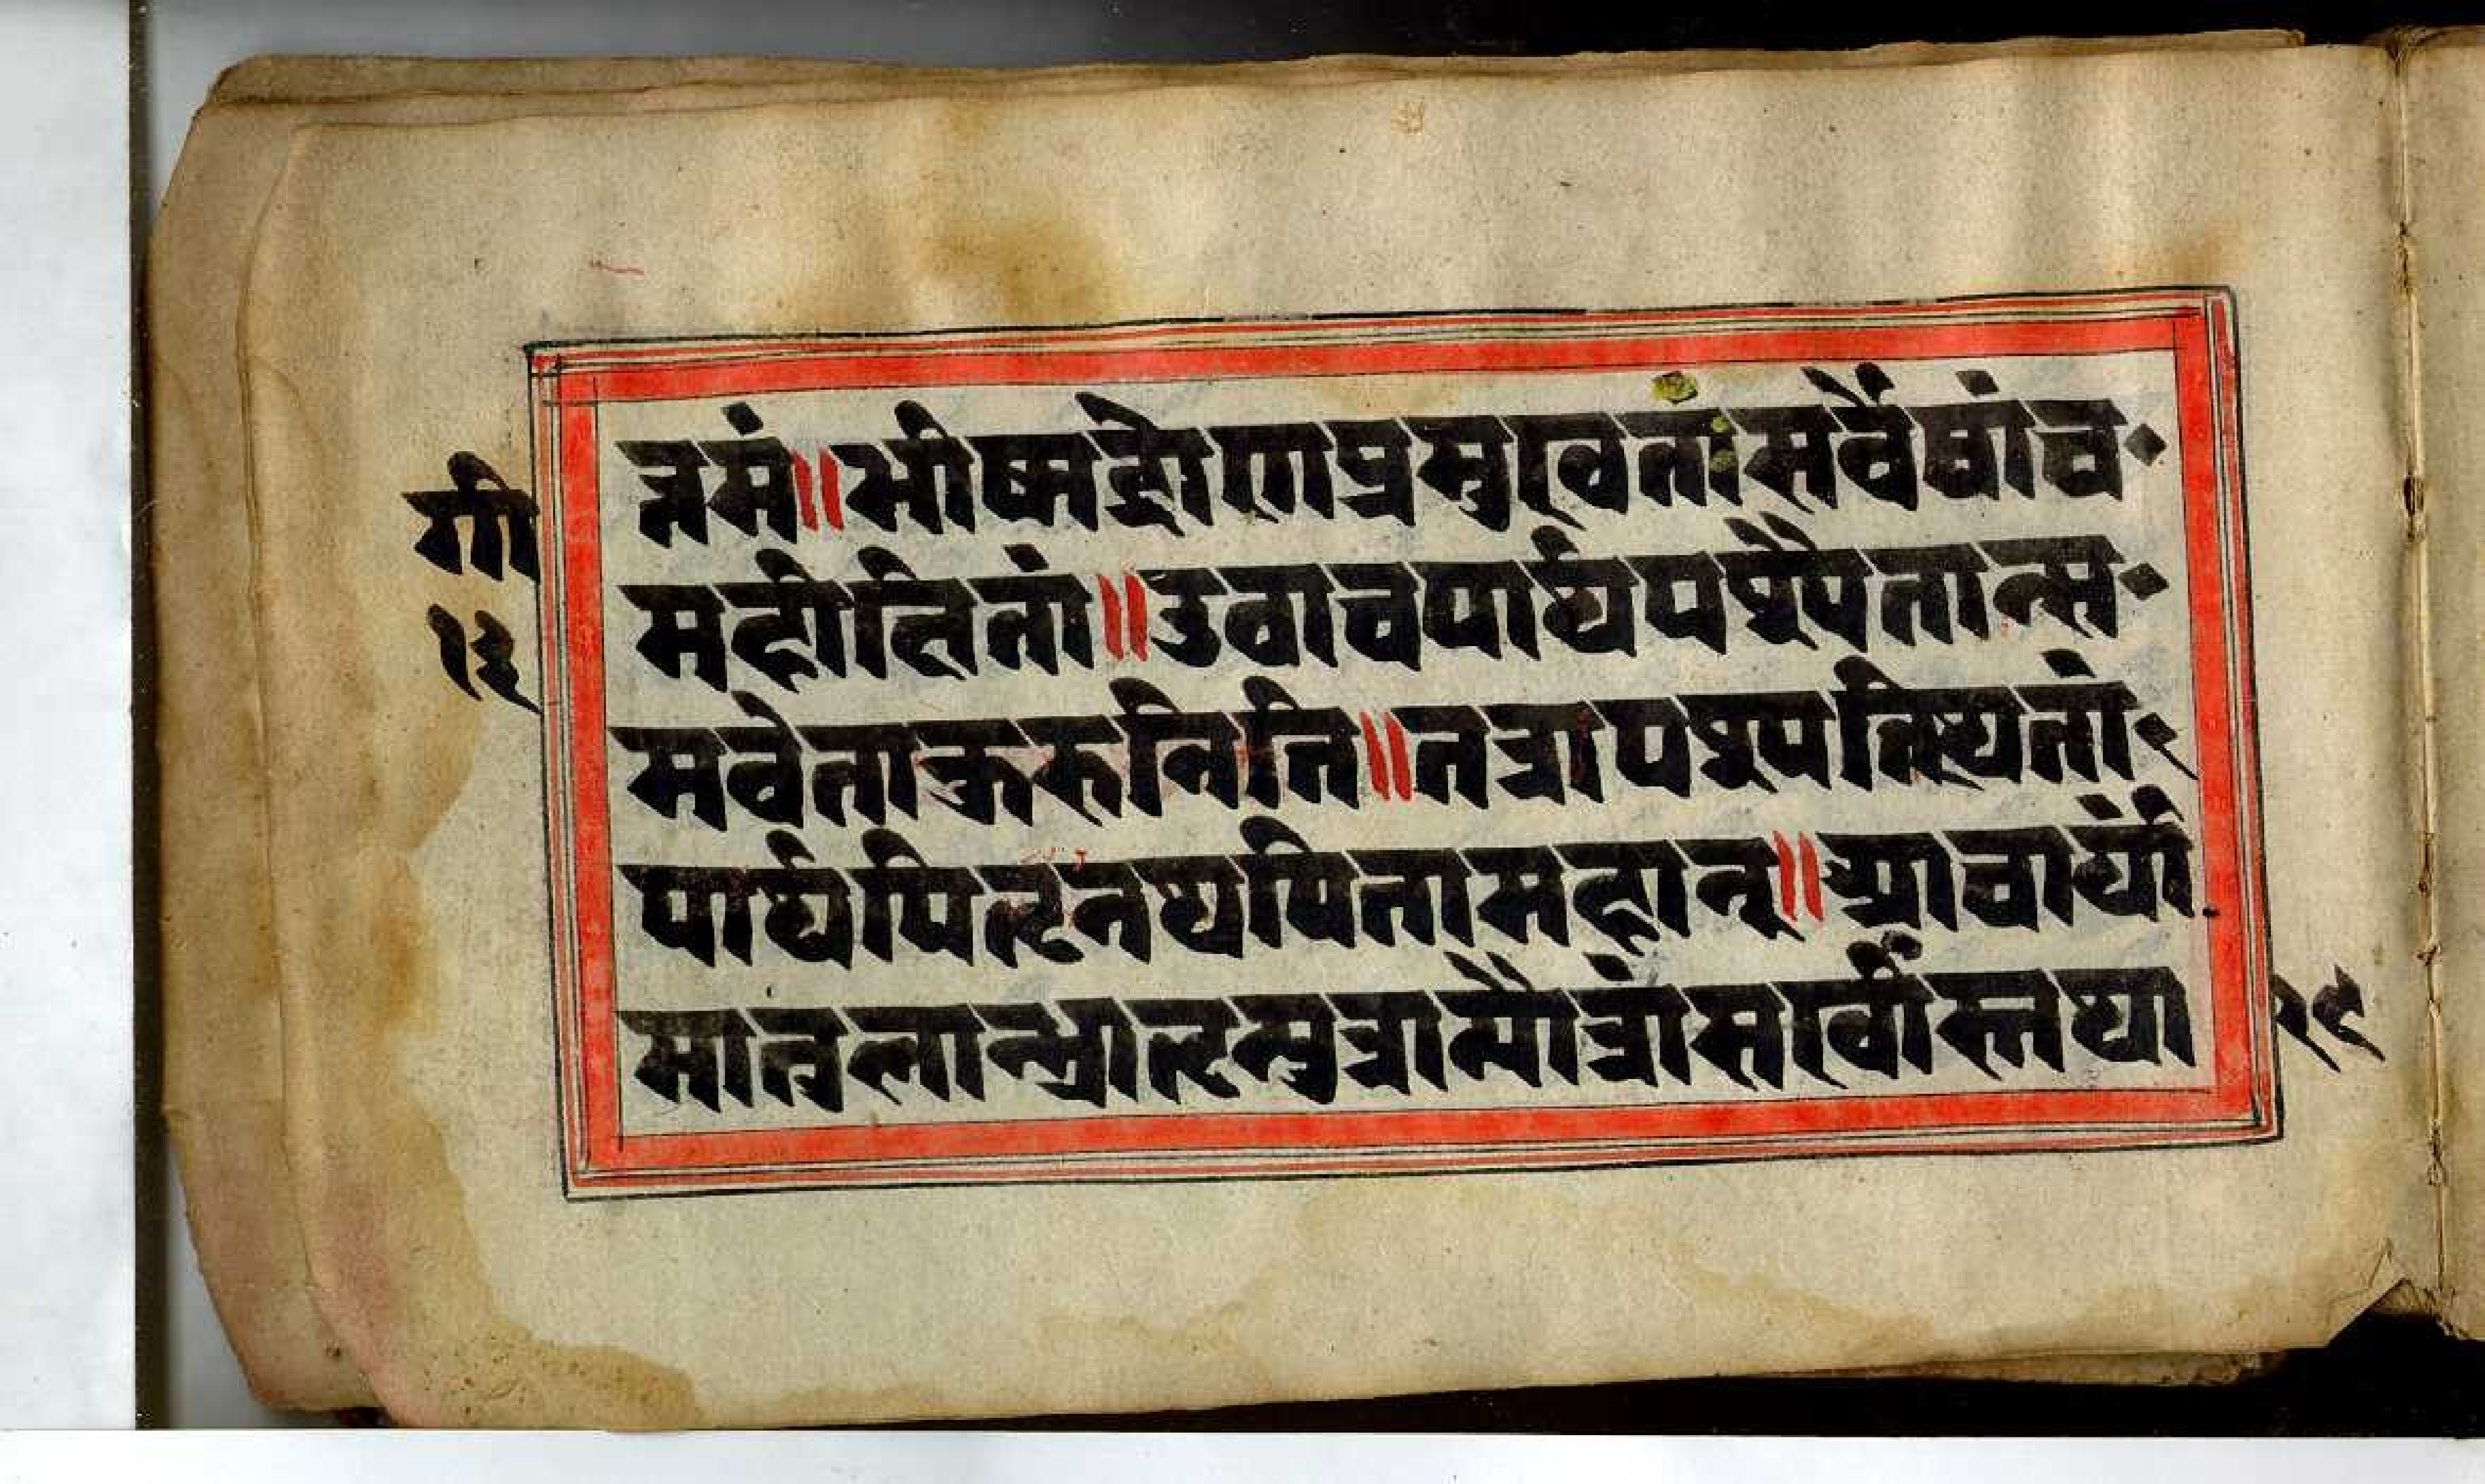 त्तमं॥भीष्मद्रोणप्रमुखतांसर्वेषांच
गी
महीक्षितां॥उवाचपार्थपश्यैतान्स
१३
मवेतान्कुरुनिति॥तत्रापश्यत्स्थितां
पार्थपितॄनथपितामहान्॥आचार्यां
मातुलान्भ्रातॄन्पुत्रान्पौत्रांसखींस्तथा
१९